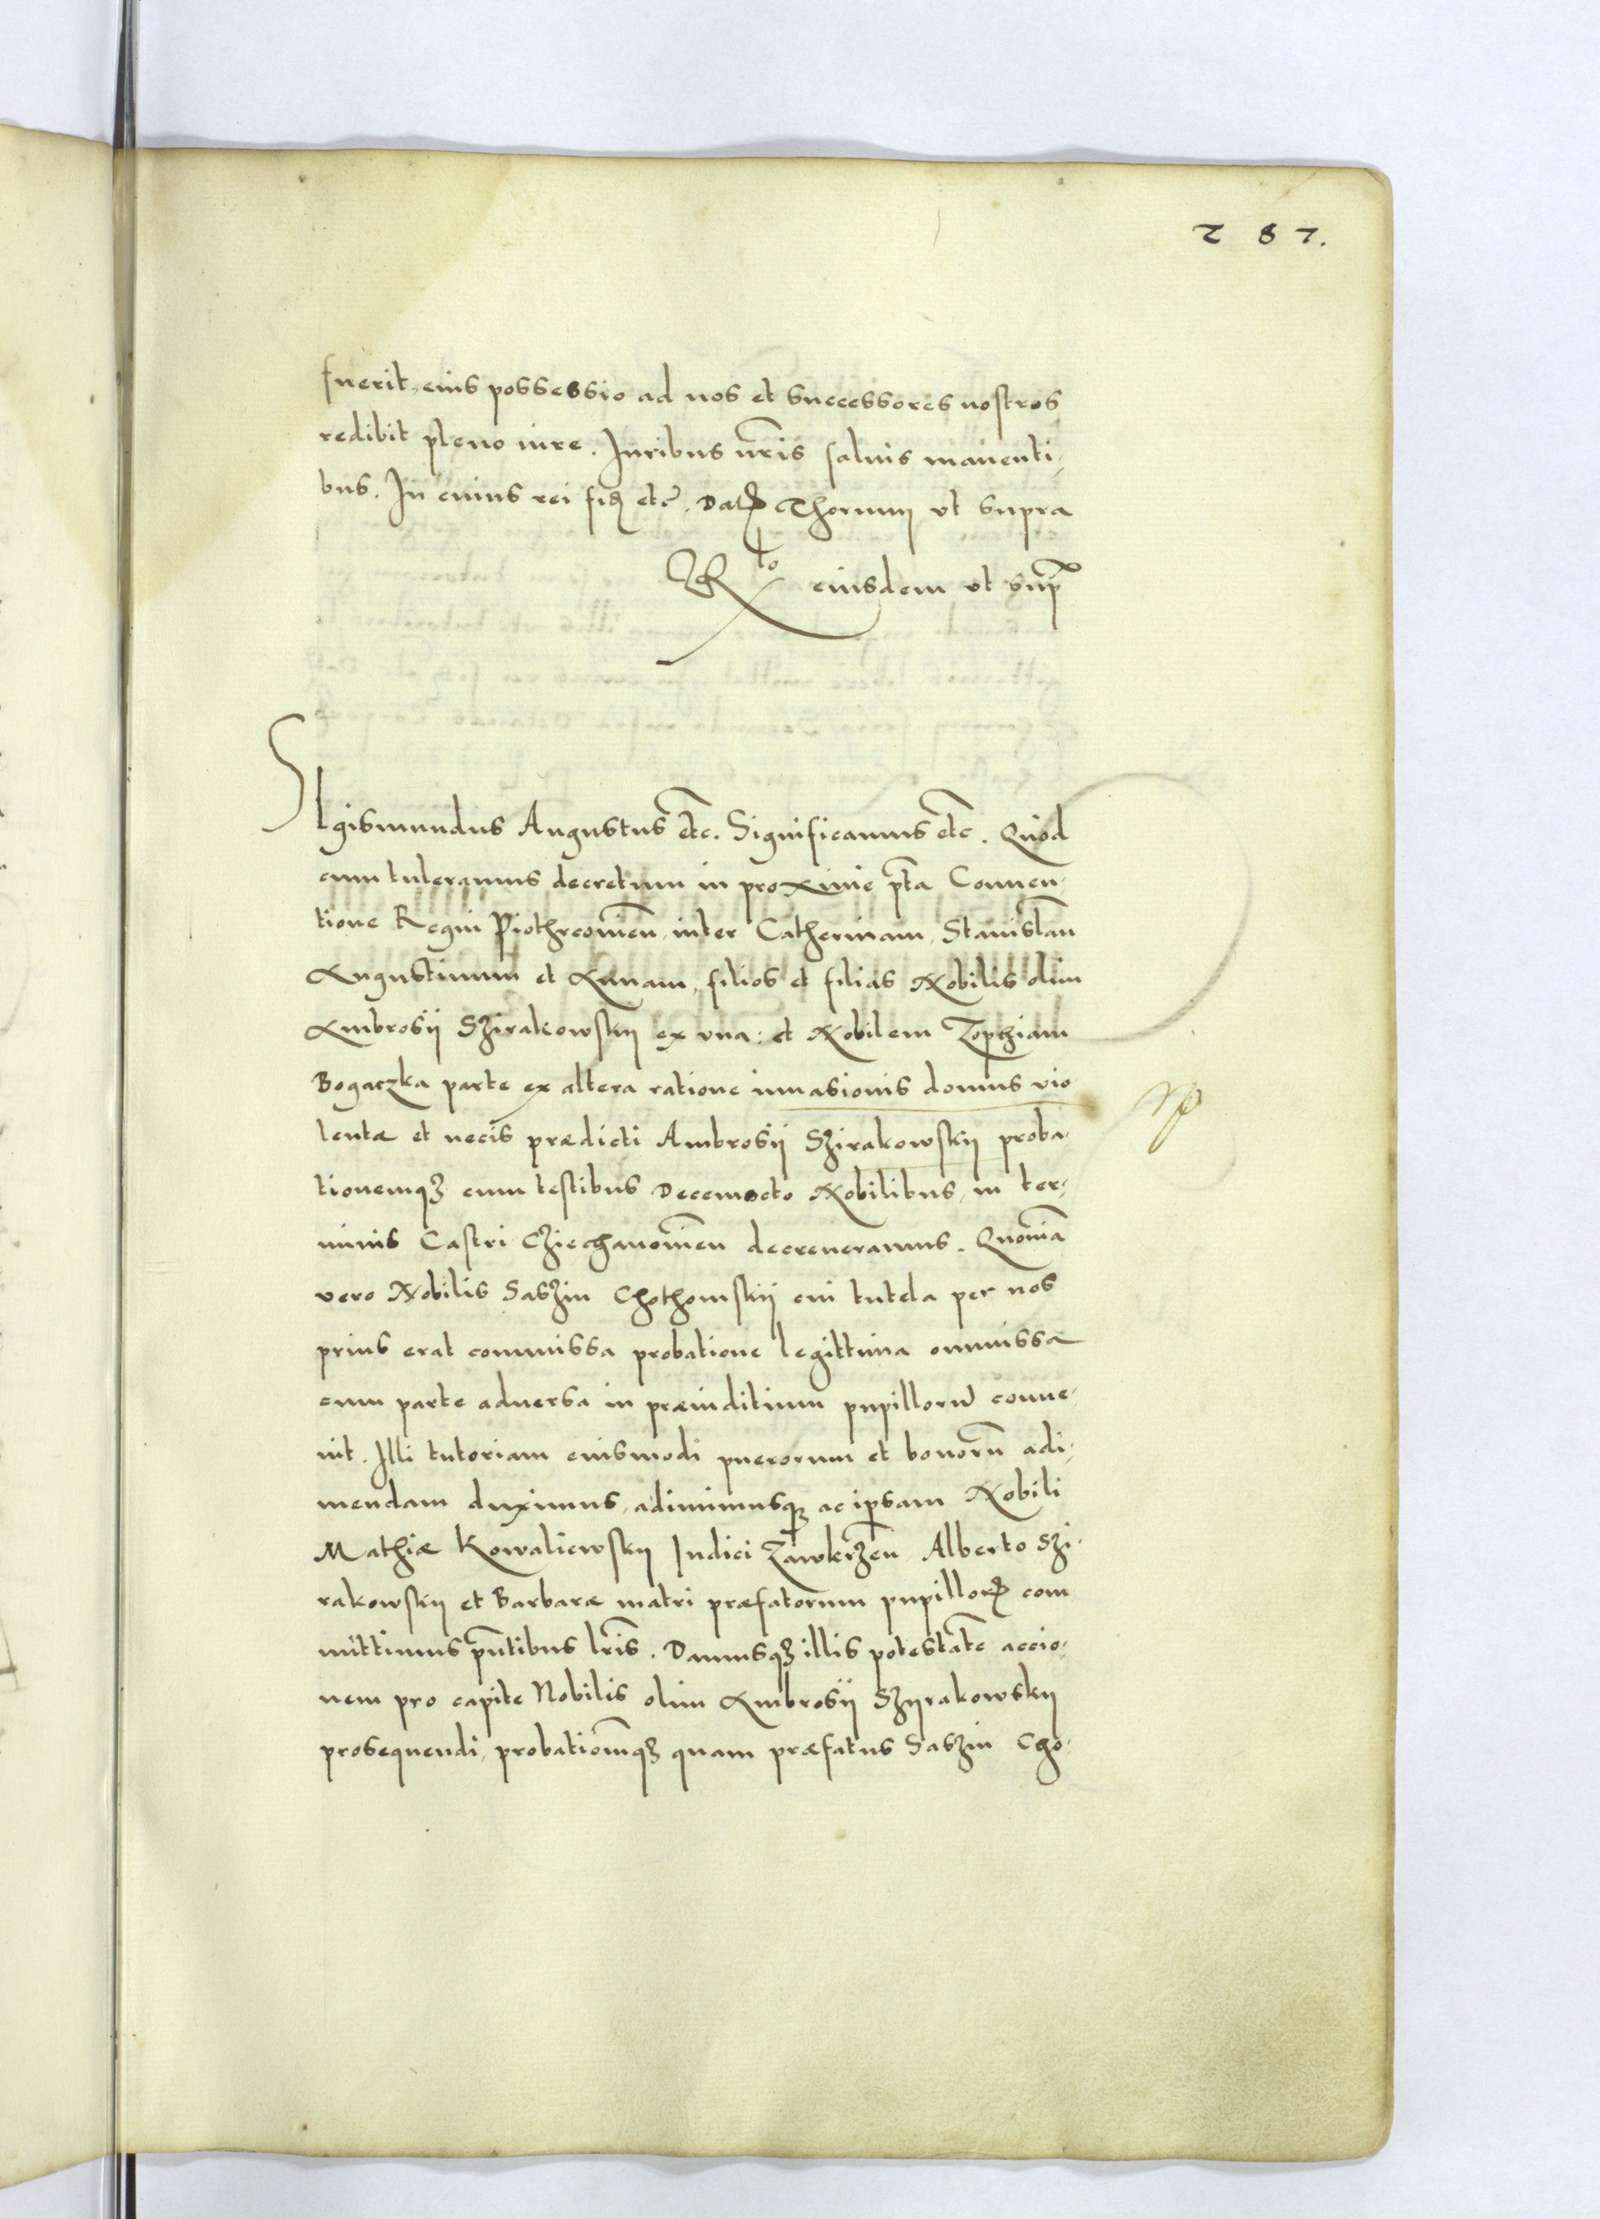 287.
fuerit, eius possessio ad nos et successores nostros
redibit pleno iure. Iuribus nr̄is salvis manenti-
bus. In cuius rei fid etc̃. Dat Thorunij ut supra
Rto eiusdem ut sup
SIgismundus Augustus etc. Significamus etc. Quod
cum tuleramus decretum in proxime p̄ta Conven-
tione Regni Piothrcovień inter Catherinam, Stanislaū
Augustinum et Annam, filios et filias Nobilis olim
Ambrosÿ Szirakowskij ex una: et Nobilem Zophiam
Bogaczka parte ex altera ratione invasionis domus vio
lentæ et necis prædicti Ambrosÿ Szirakowskij proba-
tionemqʒ cum testibus Decemocto Nobilibus, in ter-
minis Castri Cziechanovień decreveramus. Quoniā
vero Nobilis Saszin Chothomskij cui tutela per nos
prius erat commissa probatione legittima ommissa
cum parte adversa in præiuditium pupillorū conve-
nit. Illi tutoriam eiusmodi puerorum et bonorū adi-
mendam duximus, adimimusqʒ ac ipsam Nobili
Mathiæ Kowaliewskij Iudici Zawkrzeń Alberto Szi-
rakowskij et Barbaræ matri præfatorum pupillorꝝ com
mittimus p̄ntibus lr̄is. Damusqʒ illis potestatē accio-
nem pro capite Nobilis olim Ambrosÿ Szyrakowskij
prosequendi, probationēqʒ quam præfatus Saszin Cho-